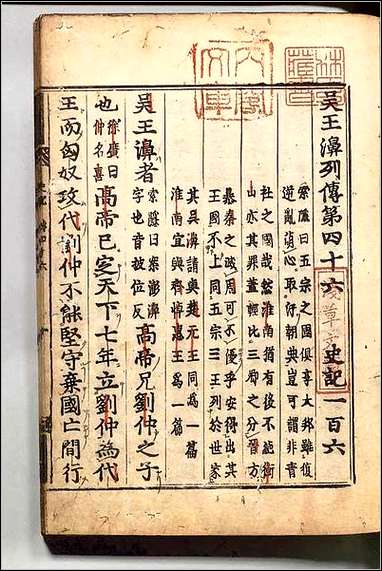 吳王濞列傳第四十六 史記一百六
索隱曰五宗之國俱享大邦雖復
逆亂萌心取汙朝典豈可謂非青
社之國哉然淮南猶有後不絕衡
山亦其罪蓋輕比三卿之分晉方
暴秦之滅周可不優乎安得出其
王國不上同五宗三王列於世家
其吳濞請與楚元王同為一篇
淮南宜與齊悼惠王為一篇
吳王濞者索隱曰案澎濞字也音披位反高帝兄劉仲之子
也徐廣曰仲名喜高帝已定天下七年立劉仲為代
王而匈奴攻代劉仲不能堅守棄國亡間行